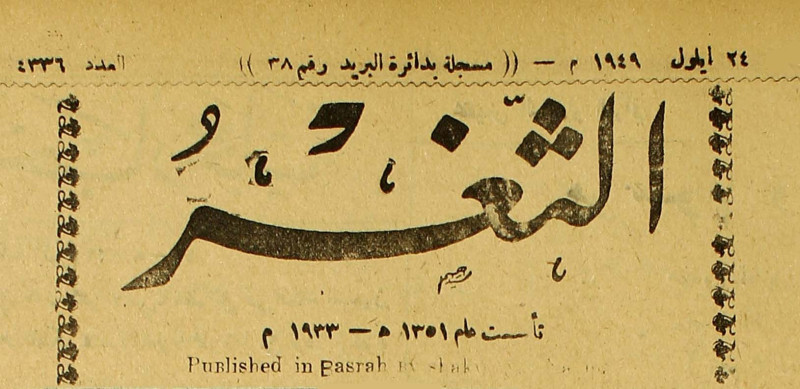 ٢٤ ايلول ١٩٤٩ م — (( مسجلة بدائرة البريد رقم ٣٨ )) العدد ٤٣٣٦
الثَّغْرُ
تأسست عام ١٣٥١ ه — ١٩٣٣ م
Published in Basrah